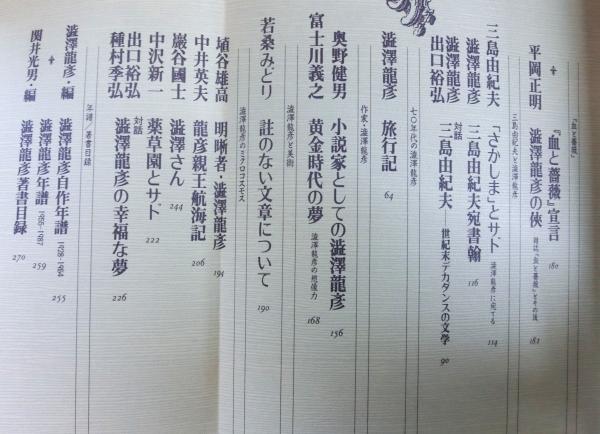 『血と薔薇』
『血と薔薇』宣言 180
平岡正明 澁澤龍彦の俠 雑誌『血と薔薇』とその後 182
三島由紀夫と澁澤龍彦
三島由紀夫 「さかしま」とサド 澁澤龍彦に宛てる 114
澁澤龍彦 三島由紀夫宛書翰 116
澁澤龍彦
出口裕弘
対話
三島由紀夫──世紀末デカダンスの文学 90
七〇年代の澁澤龍彦
澁澤龍彦 旅行記 64
作家・澁澤龍彦
奥野健男 小説家としての澁澤龍彦 156
富士川義之 黄金時代の夢 澁澤龍彦の想像力 168
澁澤龍彦と美術
若桑みどり 註のない文章について 190
澁澤龍彦のミクロコスモス
埴谷雄高 明晰者・澁澤龍彦 194
中井英夫 龍彦親王航海記 206
巖谷國士 澁澤さん 244
中沢新一 薬草園とサド 222
出口裕弘
種村季弘
対話
澁澤龍彦の幸福な夢 226
年譜/著書目録
澁澤龍彦・編 澁澤龍彦自作年譜 1928-1954 255
澁澤龍彦年譜 1955-1987 259
関井光男・編 澁澤龍彦著書目録 270